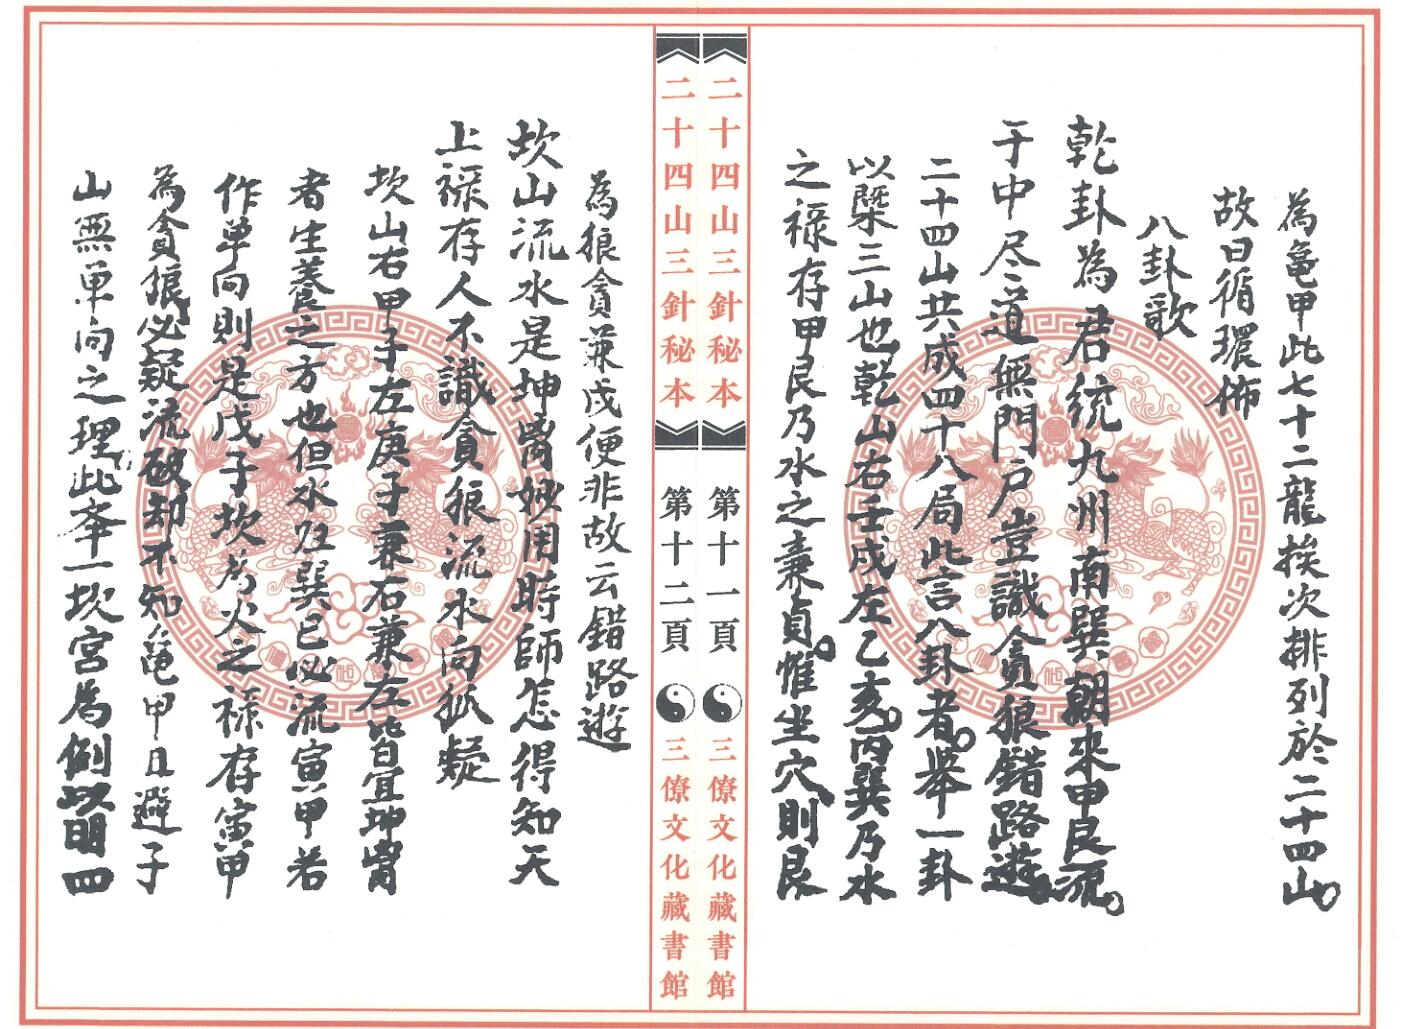 為龜甲此七十二龍挨次排列於二十四山。
故曰循環佈
八卦歌
乾卦為君統九州南巽朝來甲艮流。
于中尽道無門戶豈識貪狼錯路遊
二十四山共成四十八局此言八卦者。舉一卦
以槩三山也乾山右壬戌左乙亥。丙巽乃水
之祿存甲艮乃水之亷貞。惟坐穴則艮
二十四山三針秘本
第十一頁
三僚文化藏書館
二十四山三針秘本
第十二頁
三僚文化藏書館
為狼貪兼戌便非故云錯路遊
坎山流水是坤甾妙用時師怎得知天
上祿存人不識貪狼流水向狐疑
坎山右甲子左庚子兼右兼左皆宜坤甾
者生養之方也但水及巽巳必流寅甲若
作单向則是戊子坎為火之祿存寅甲
為貪狼必疑流破却不知龜甲且避子
山無单向之理此夲一坎宮為例以明四